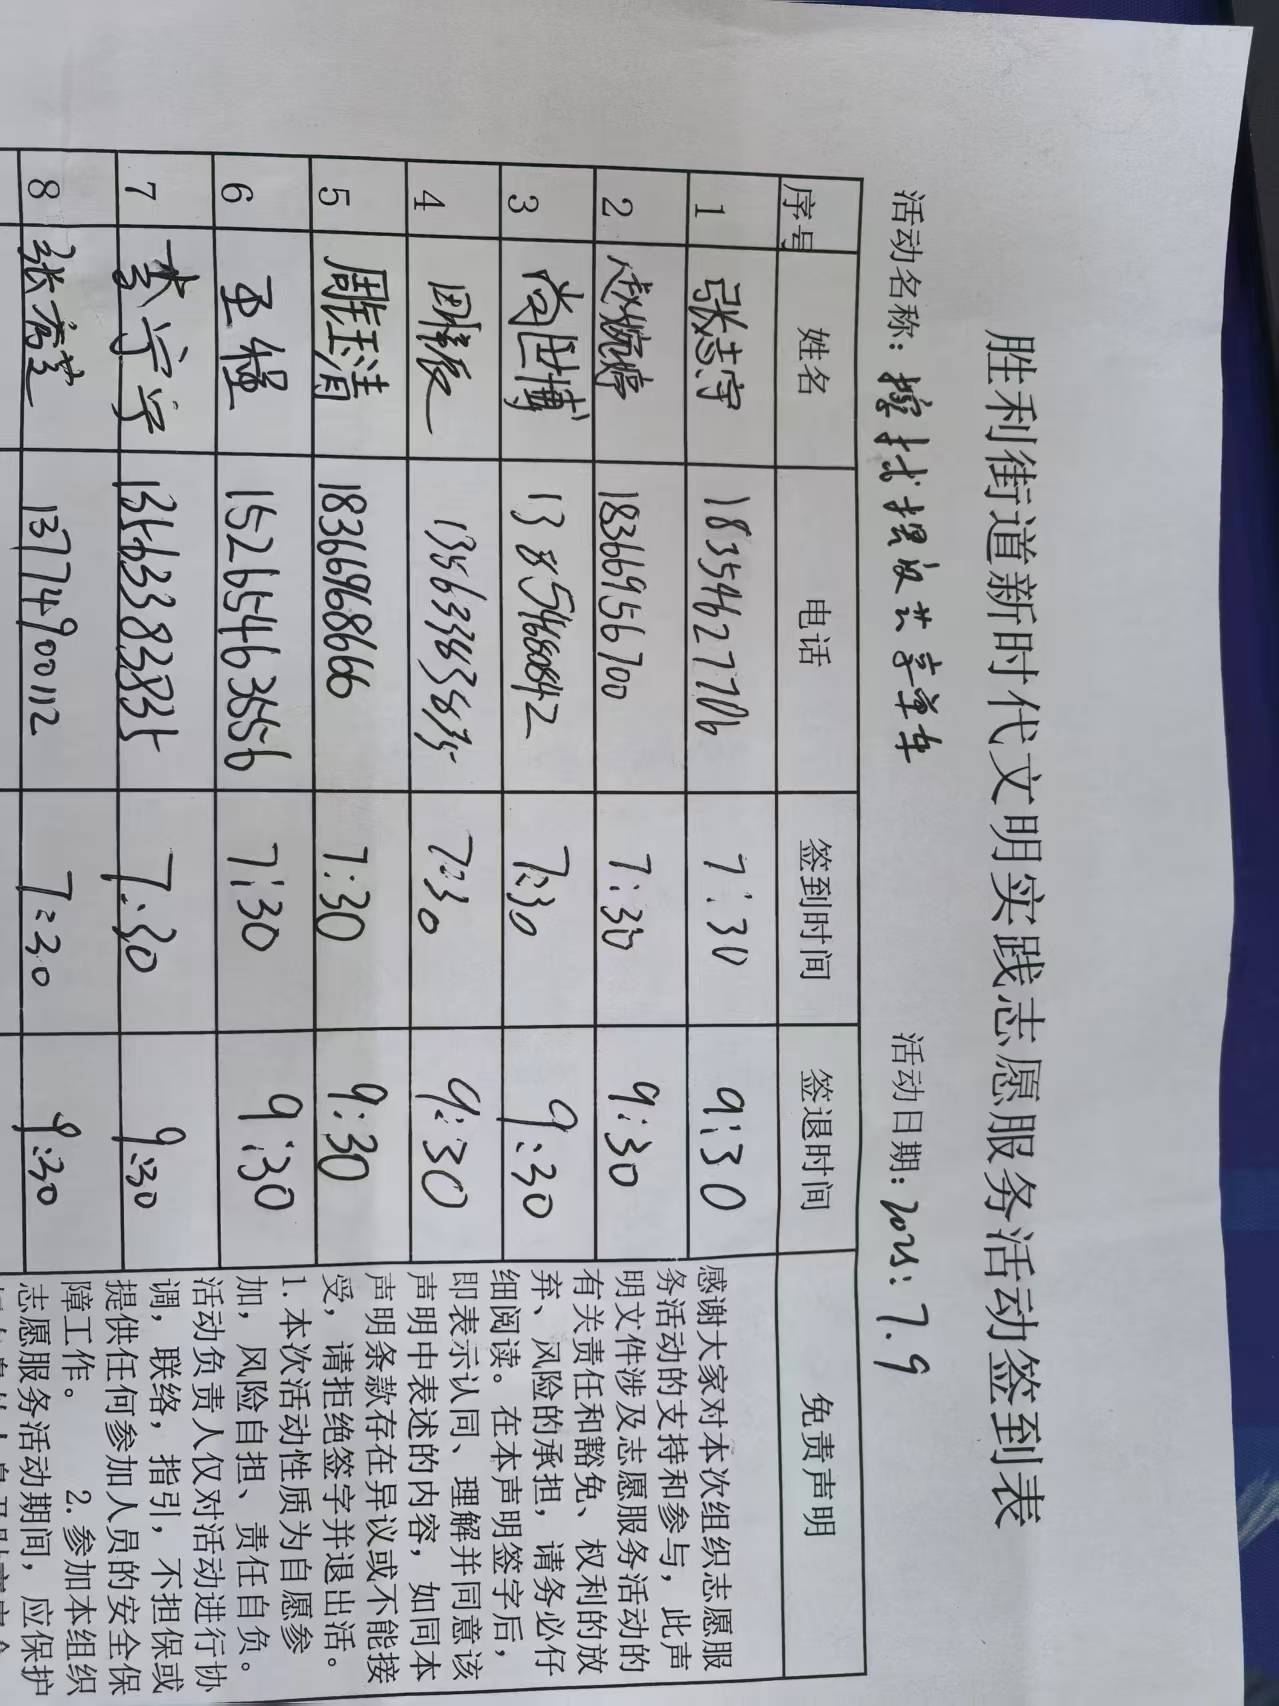 胜利街道新时代文明实践志愿服务活动签到表
活动名称：擦拭摆放共享单车 活动日期：2025：7.9
序号 姓名 电话 签到时间 签退时间 免责声明
1 张志宇 18354627706 7:30 9:30
2 赵婉婷 18366956700 7:30 9:30
3 尚世博 13854680842 7:30 9:30
4 7:30 9:30
5 周玉清 18366968666 7:30 9:30
6 王程 15265463656 7:30 9:30
7 李宁宁 13563383835 7:30 9:30
8 13774900112 7:30 9:30
感谢大家对本次组织志愿服
务活动的支持和参与，此声
明文件涉及志愿服务活动的
有关责任和豁免、权利的放
弃、风险的承担，请务必仔
细阅读。在本声明签字后，
即表示认同、理解并同意该
声明中表述的内容，如同本
声明条款存在异议或不能接
受，请拒绝签字并退出活。
1.本次活动性质为自愿参
加，风险自担、责任自负。
活动负责人仅对活动进行协
调，联络，指引，不担保或
提供任何参加人员的安全保
障工作。 2.参加本组织
志愿服务活动期间，应保护